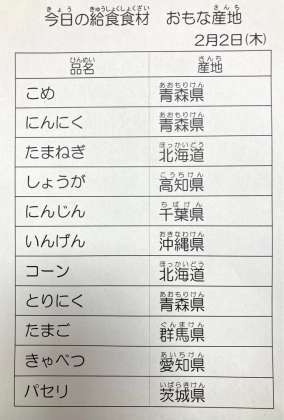 今日の給食食材 おもな産地
2月2日(木)
品名 産地
こめ 青森県
にんにく 青森県
たまねぎ 北海道
しょうが 高知県
にんじん 千葉県
いんげん 沖縄県
コーン 北海道
とりにく 青森県
たまご 群馬県
きゃべつ 愛知県
パセリ 茨城県